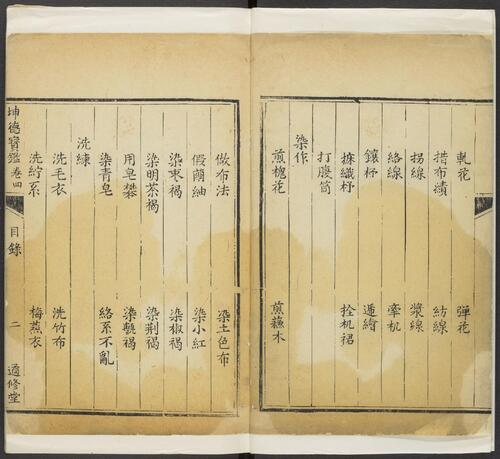 軋花 彈花
揩布縜 紡線
拐線 漿線
絡線 牽机
鑲杼 遞繒
捺織杼 拴机裙
打腹筒
染作
煎槐花 煎蘓木
做布法 染土色布
假蘭紬 染小紅
染枣褐 染椒褐
染明茶褐 染荆褐
用皂礬 染氊褐
染青皂 絡糸不亂
洗練
洗毛衣 洗竹布
洗紵糸 梅蒸衣
坤德寶鑑 卷四 目錄 二 適修堂